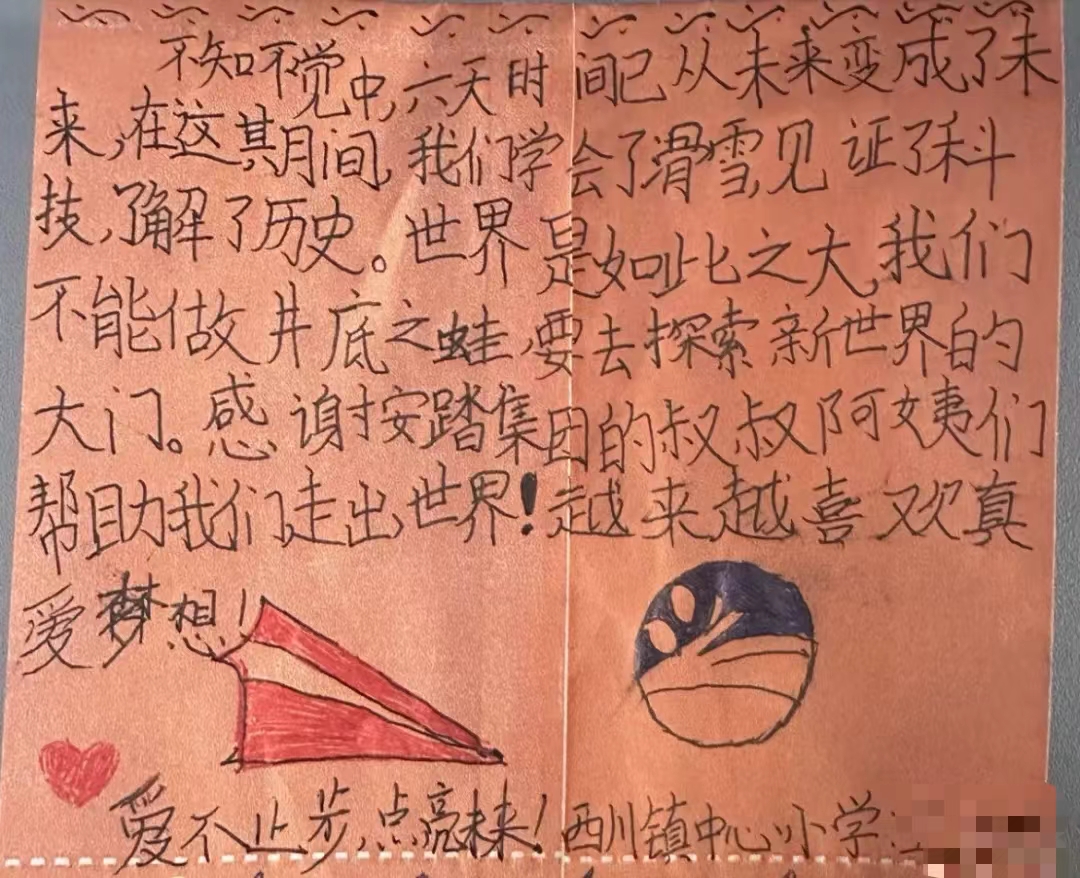 不知不觉中,六天时间已从未来变成了未
来,在这其期间,我们学会了滑雪,见证了科
技,了解了历史。世界是如此之大,我们
不能做井底之蛙,要去探索新世界的
大门。感谢安踏集团的叔叔阿姨们
帮助我们走出世界!越来越喜欢真
爱梦想!
爱不止步,点亮未来!西川镇中心小学: